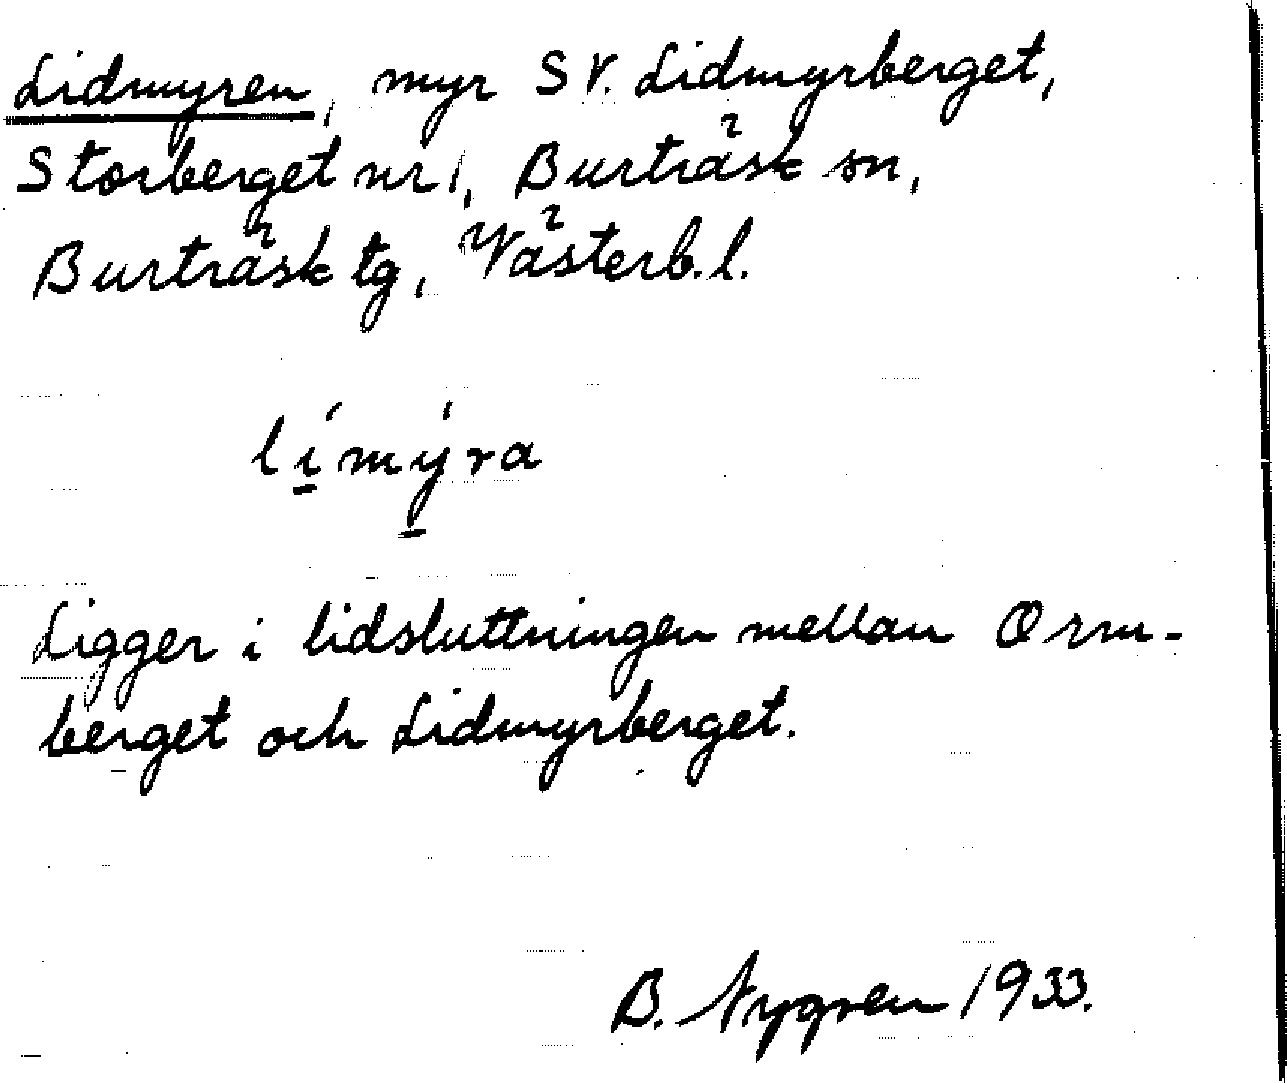 Lidmyren, myr S V. Lidmyrberget,
Storberget nr 1, Burträsk sn,
Burträsk tg, Västerb. l.
lí̱mý̱ra
Ligger i lidsluttningen mellan Orm-
berget och Lidmyrberget.
B. Nygren 1933.